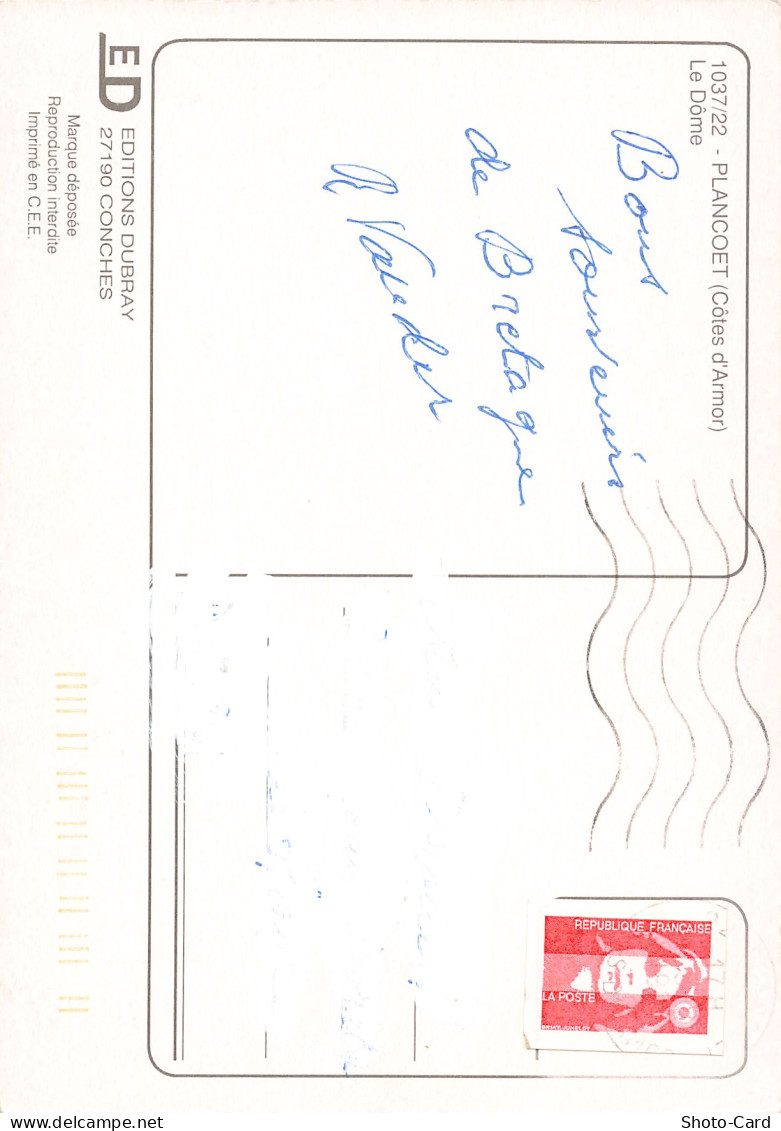 1037/22 - PLANCOET (Côtes d'Armor)
Le Dôme
Bons
souvenirs
de Bretagne
ED
EDITIONS DUBRAY
27190 CONCHES
Marque déposée
Reproduction interdite
Imprimé en C.E.E.
REPUBLIQUE FRANÇAISE
LA POSTE
Shoto-Card